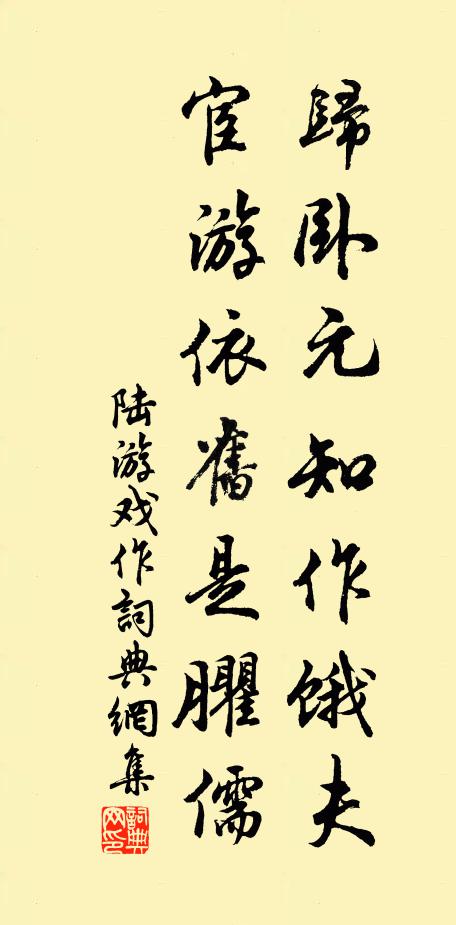 歸卧元知作餓夫
宦游依舊是臞儒
陆游戏作詞典網集
詞典网印